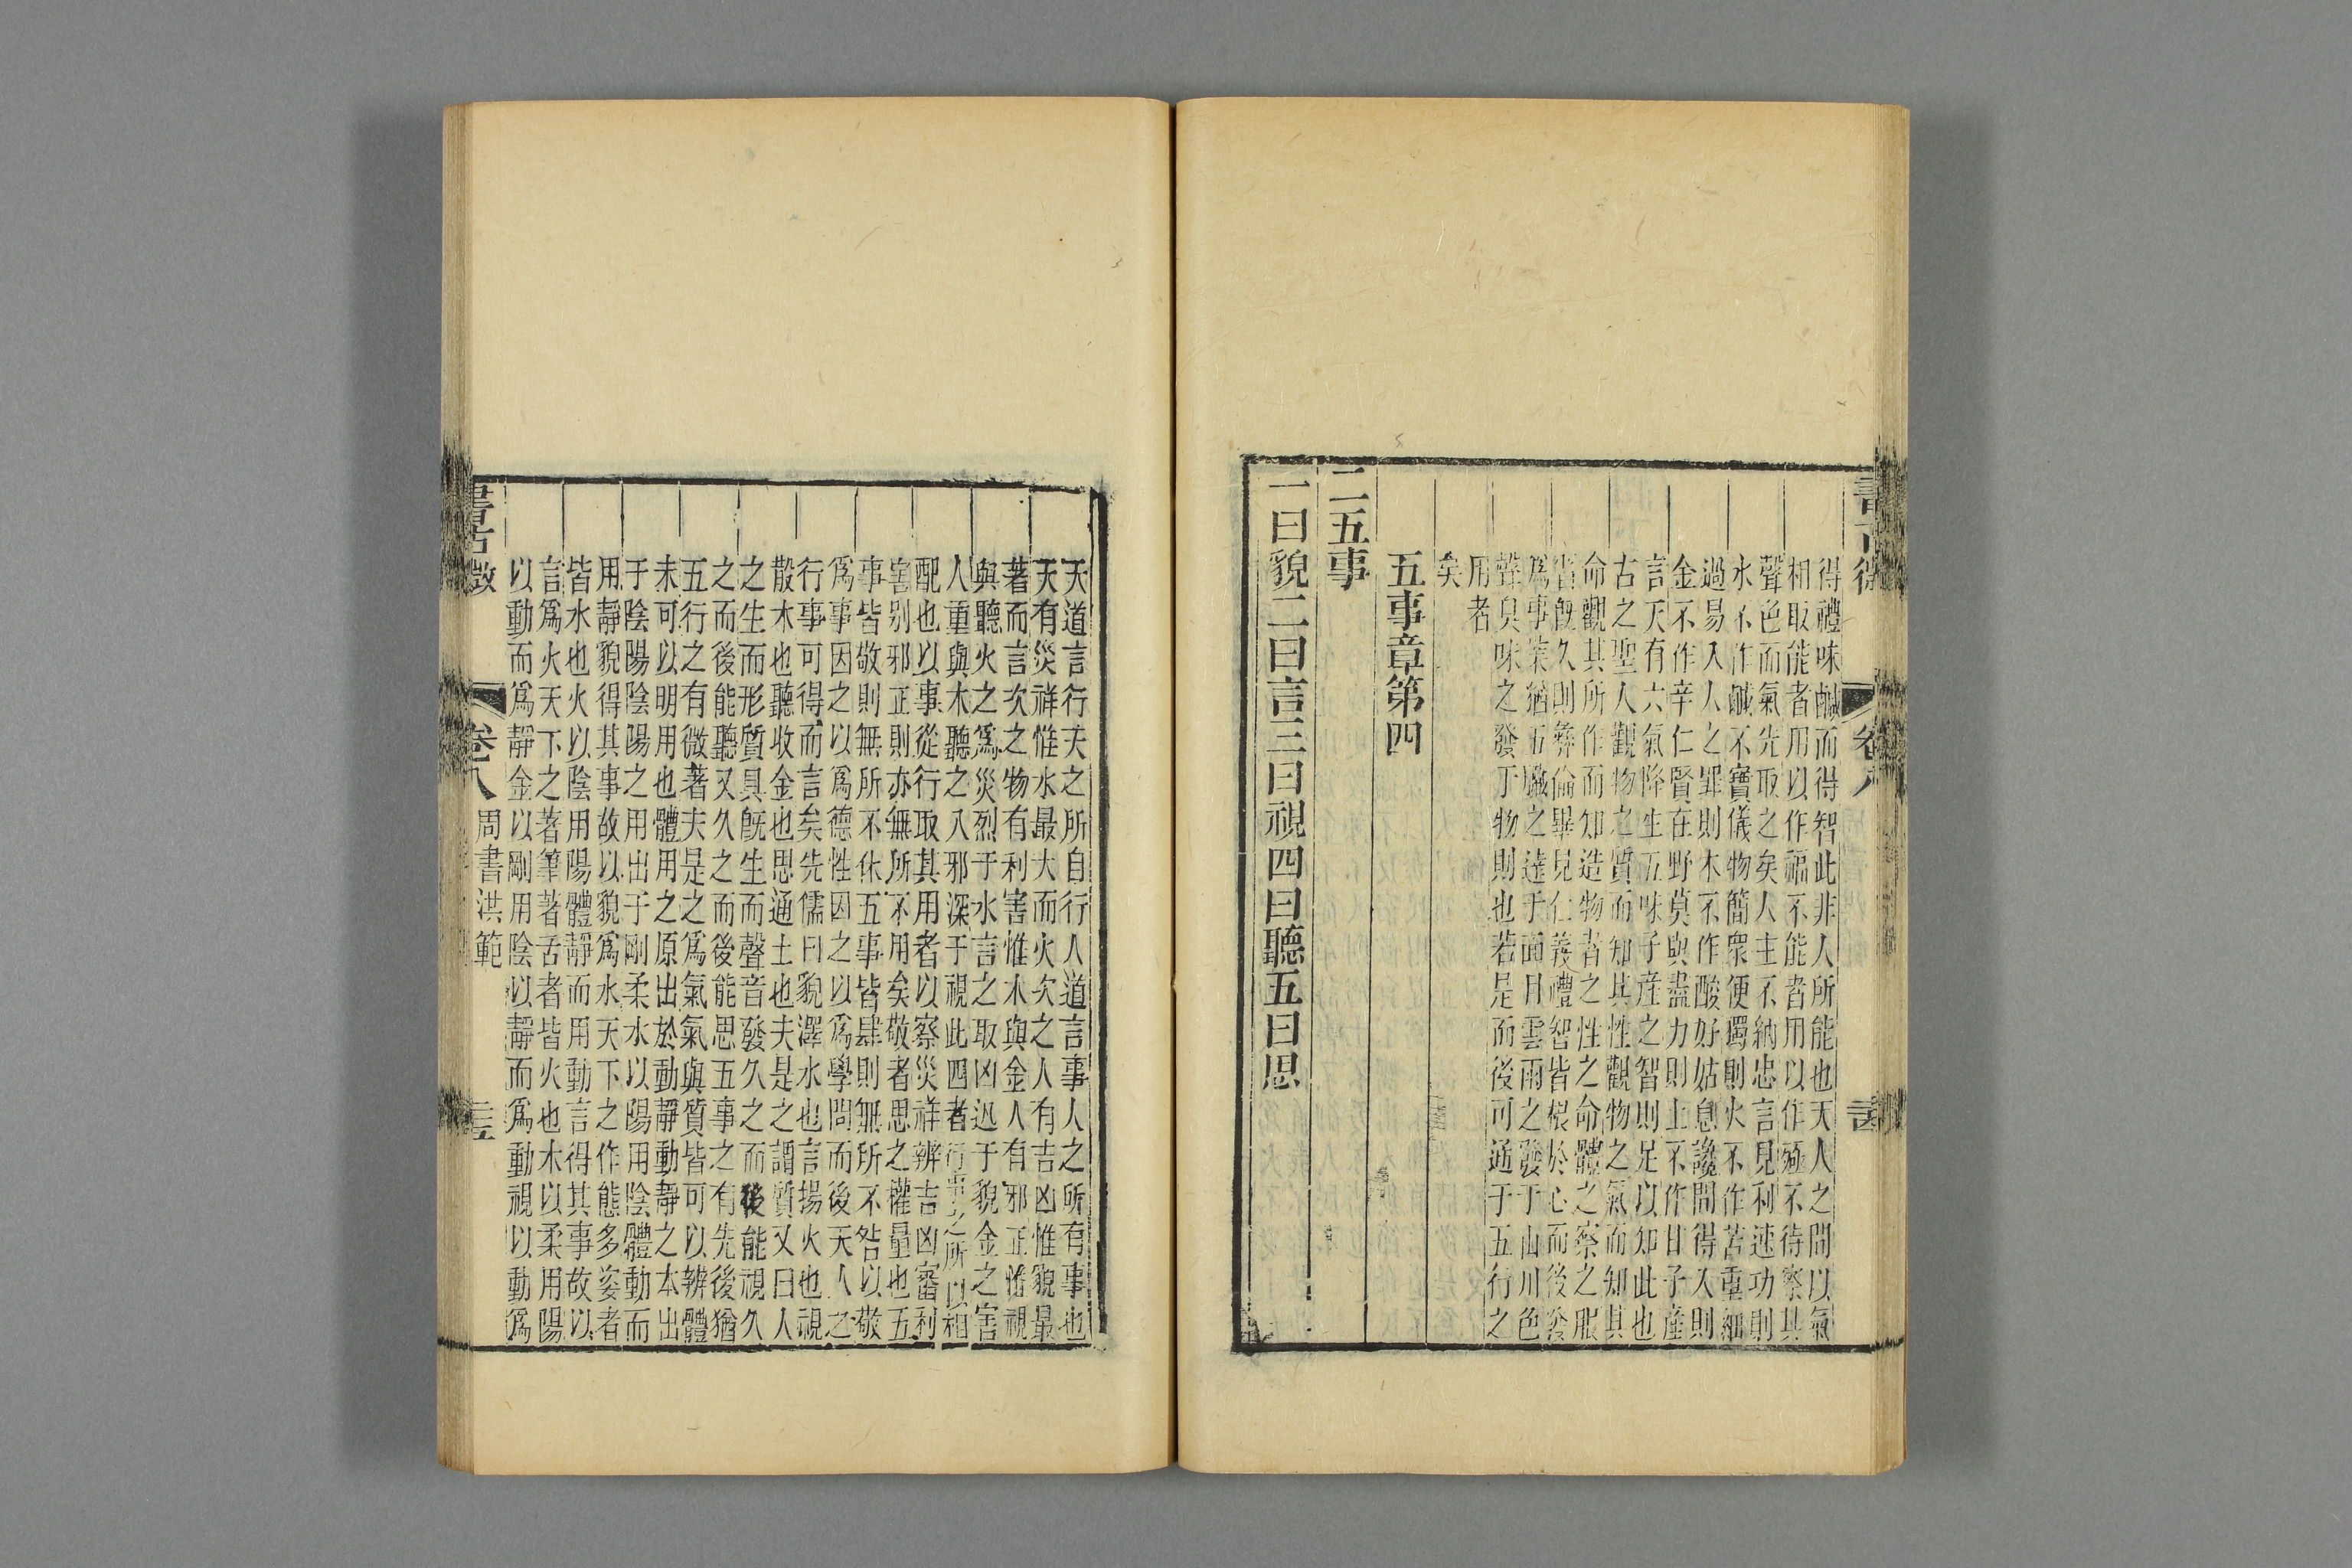 書古微
卷八
得禮味鹹而得智此非人所能也天人之間以氣
相取能者用以作福不能者用以作殛不待察其
聲色而氣先取之矣人主不納忠言見利速功則
水不作鹹不寶儀物簡衆便獨則火不作苦重細
過易入人之罪則木不作酸好姑息讒間得入則
金不作辛仁賢在野莫與盡力則土不作甘子產
言天有六氣降生五味子產之智則足以知此也
古之聖人觀物之質而知其性觀物之氣而知其
命觀其所作而知造物者之性之命體之察之服
皆旣久則彝倫畢見仁義禮智皆根於心而後發
爲事業猶五臟之達乎面目雲雨之發于山川色
聲臭味之發于物則也若是而後可通于五行之
用者
矣
五事章第四
二五事
一曰貌二曰言三曰視四曰聽五曰思
天道言行天之所自行人道言事人之所有事也
天有災祥惟水最大而火次之人有吉凶惟貌最
著而言次之物有利害惟木與金人有邪正惟視
與聽火之爲災烈于水言之取凶迅于貌金之害
人重與木聽之入邪深于視此四者行事之所以相
配也以事從行取其用者以察災祥辨吉凶審利
害别邪正則亦無所不用矣敬者思之權量也五
事皆敬則無所不休五事皆肆則無所不咎以敬
爲事因之以爲德性因之以爲學問而後天人之
行事可得而言矣先儒曰貌澤水也言揚火也視
散木也聽收金也思通土也夫是之謂質又曰人
之生而形質具旣生而聲音發久之而後能視久
之而後能聽又久之而後能思五事之有先後猶
五行之有微著夫是之爲氣氣與質皆可以辨體
未可以明用也體用之原出於動靜動靜之本出
于陰陽陰陽之用出于剛柔水以陽用陰體動而
用靜貌得其事故以貌爲水天下之作態多姿者
皆水也火以陰用陽體靜而用動言得其事故以
言爲火天下之著筆著舌者皆火也木以柔用陽
以動而爲靜金以剛用陰以靜而爲動視以動爲
書古微
卷八
周書洪範
三五